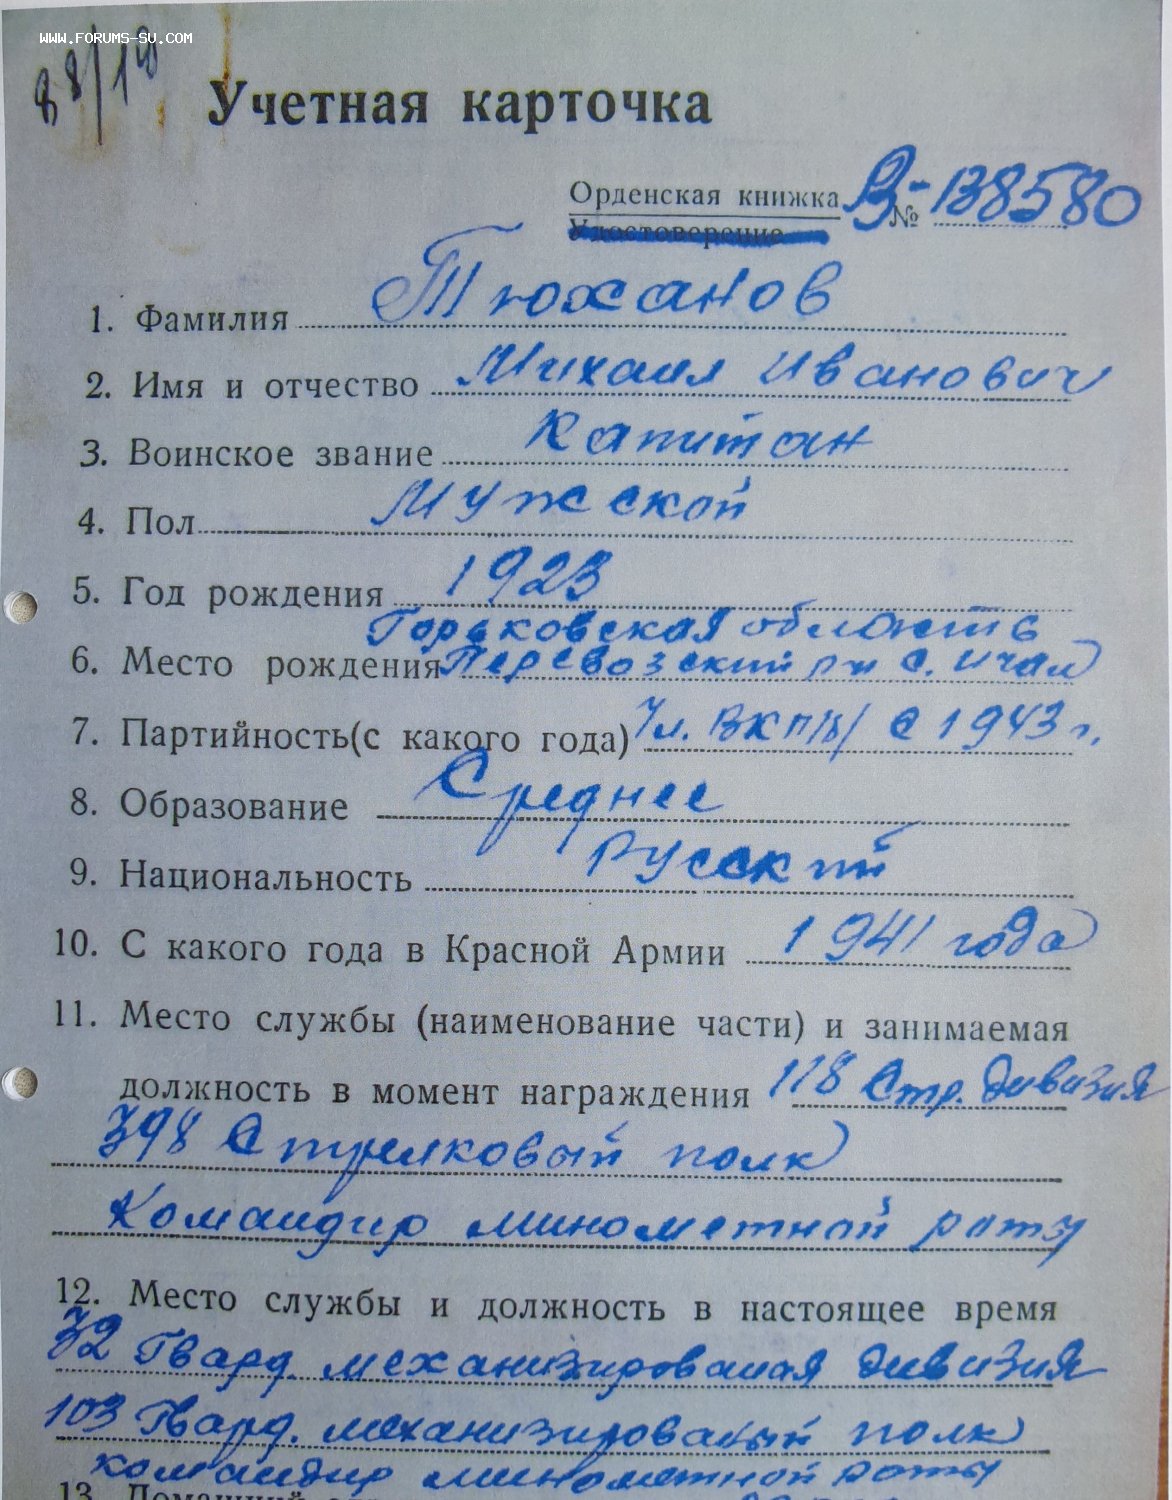 www.FORUMS-SU.COM
88/19
Учетная карточка
Орденская книжка В- № 138580
Удостоверение
1. Фамилия Тюханов
2. Имя и отчество Михаил Иванович
3. Воинское звание Капитан
4. Пол Мужской
5. Год рождения 1923
Горьковская область
6. Место рождения Перевозский рн с. Ичал
7. Партийность(с какого года) Чл. ВКП/б/ с 1943 г.
8. Образование Среднее
9. Национальность Русский
10. С какого года в Красной Армии 1941 года
11. Место службы (наименование части) и занимаемая
должность в момент награждения 118 Стр. дивизия
398 Стрелковый полк
Командир минометной роты
12. Место службы и должность в настоящее время
32 Гвард. механизированая дивизия
103 Гвард. механизированый полк
командир минометной роты
13. Домашний